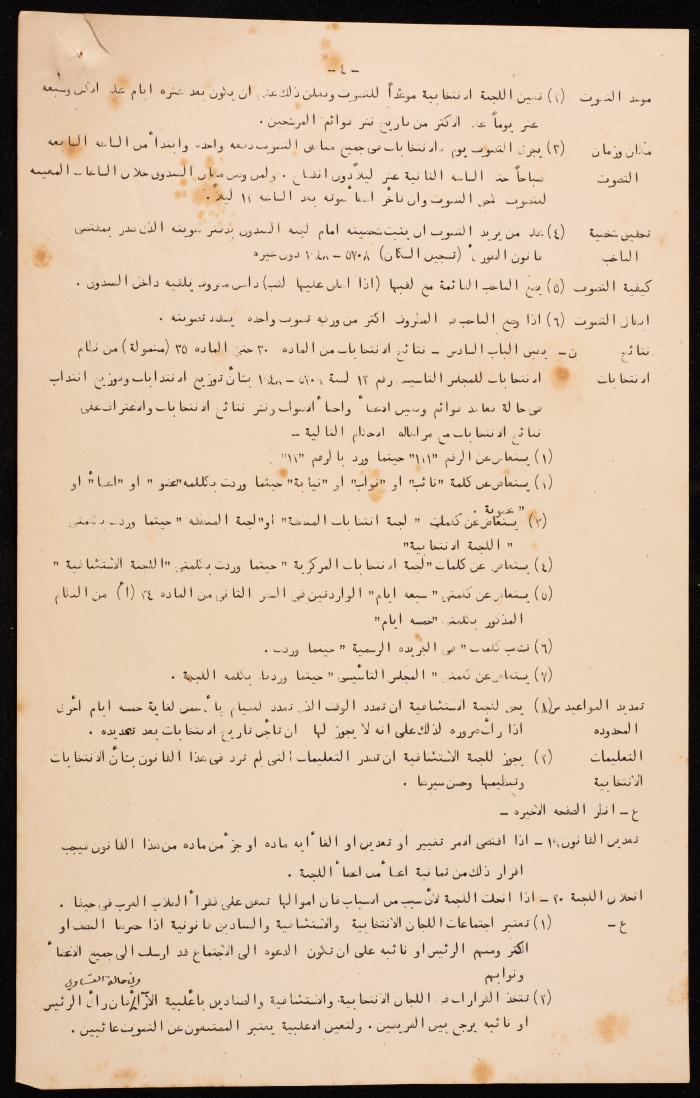 - ٤ -
موعد التصويت (٢) تعين اللجنة الانتخابية موعداً للتصويت وتعلن ذلك على ان يكون بعد عشره ايام على الاقل وسبعه
عشر يوماً على الاكثر من تاريخ نشر قوائم المرشحين .
مكان وزمان (٣) يجرى التصويت يوم الانتخابات فى جميع مناطق التصويت دفعه واحده وابتدأ من الساعه السابعه
التصويت صباحاً حتى الساعه الثانية عشر ليلاً دون انقطاع . خلال الساعات المعينه
للتصويت وان تأخر بعد الساعه ١٢ ليلاً .
تحقيق شخصية (٤) على من يريد التصويت ان يثبت شخصيته امام لجنة الصندوق بدفتر هويته الذى صدر بمقتضى
الناخب قانون الطوارئ (تسجيل السكان) ٥٧٠٨ - ١٩٤٨ دون غيره
كيفية التصويت (٥) يضع الناخب القائمة مع لقبها (اذا اعلن عليها لقب) داخل مظروف يلقيه داخل الصندوق .
ابطال التصويت (٦) اذا وضع الناخب فى المظروف اكثر من ورقه تصويت واحده يفقد تصويته .
نتائج ن - الباب السادس - نتائج الانتخابات من الماده ٣٠ حتى الماده ٣٥ (مشمولة) من نظام
انتخابات الانتخابات للمجلس التأسيسى رقم ١٢ لسنة بشأن توزيع الانتدابات وتوزيع انتداب
فى حالة تعاهد قوائم وتعيين الاعضاء واحصاء الاصوات ونشر نتائج الانتخابات والاعتراض على
نتائج الانتخابات مع مراعاة الاحكام التالية -
(١) يستعاض عن الرقم "١٢١" حيثما ورد بالرقم "١١" .
(٢) يستعاض عن كلمة "نائب" او "نواب" او "نيابة" حيثما وردت بكلمه "عضو" او "اعضاء" او
"عضوية" .
(٣) يستعاض عن كلمات "لجنة انتخابات المنطقة" او "لجنة المنطقه" حيثما وردت بكلمتى
"اللجنة الانتخابية"
(٤) يستعاض عن كلمات "لجنة انتخابات المركزية" حيثما وردت بكلمتى "اللجنة الاستئنافية"
(٥) يستعاض عن كلمتى "سبعه ايام" الواردتين فى السطر الثانى من الماده ٣٤ (أ) من النظام
المذكور بكلمتى "خمسه ايام"
(٦) تشطب كلمات "فى الجريده الرسمية" حيثما وردت .
(٧) يستعاض عن كلمتى "المجلس التأسيسى" حيثما وردتا بكلمه اللجنة .
تمديد المواعيد س (٨) يحق للجنة الاستئنافية ان تمدد الوقت الذى تمدد للقيام بأى عمل لغاية خمسه ايام أخرى
المحدوده اذا رأت ضروره لذلك على انه لا يجوز لها ان تؤجل تاريخ الانتخابات بعد تحديده .
التعليمات (٢) يجوز للجنة الاستئنافية ان تصدر التعليمات التى لم ترد فى هذا القانون بشأن الانتخابات
الانتخابية وتنظيمها وحسن سيرها .
ع - انظر الصفحه الاخيره -
تعديل القانون ١٩ - اذا اقتضى الامر تغيير او تعديل او الغاء أيه ماده او جزء من ماده من هذا القانون فيجب
اقرار ذلك من ثمانية اعضاء من اعضاء اللجنة .
انحلال اللجنة ٢٠ - اذا انحلت اللجنة لأى سبب من الاسباب فان اموالها تنفق على فقراء الطلاب العرب فى حيفا .
ع - (١) تعتبر اجتماعات اللجان الانتخابية والاستئنافية والصناديق قانونية اذا حضرها النصف او
اكثر ومنهم الرئيس او نائبه على ان تكون الدعوه الى الاجتماع قد ارسلت الى جميع الاعضاء
ونوابهم
وفى حالة التساوى
(٢) تتخذ القرارات فى اللجان الانتخابية والاستئنافية والصناديق بأغلبية الآراء فان رأى الرئيس
او نائبه يرجح بين الفريقين . ولتعيين الاغلبية يعتبر الممتنعون عن التصويت غائبين .